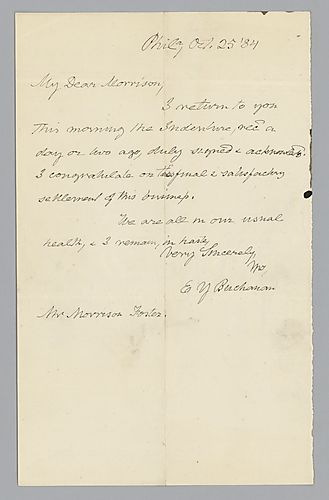 Phila Oct. 25 '84
My Dear Morrison,
I return to you
this morning the Indenture, rec'd a
day or two ago, duly signed & acknowled.
I congratulate on the final & satisfactory
settlement of this business.
We are all in our usual
health, & I remain, in haste,
Very Sincerely
E Y Buchanan
Mr Morrison Foster.